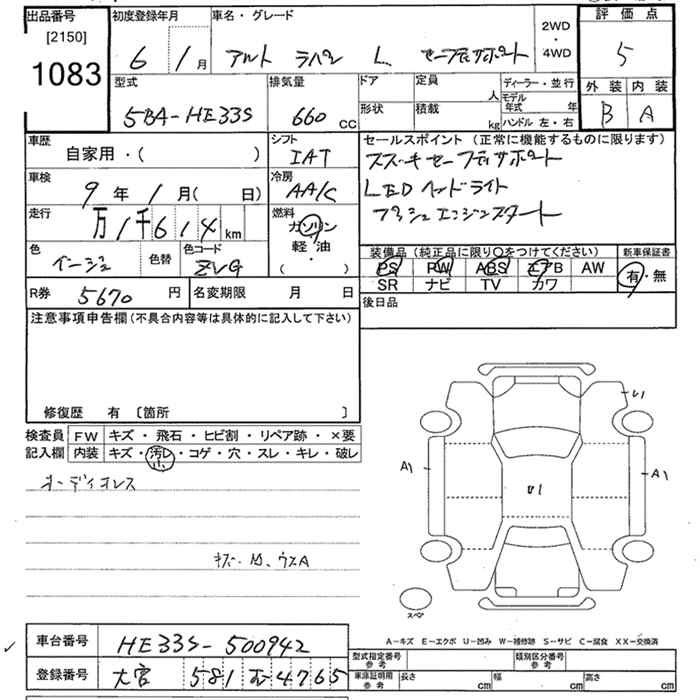 出品番号 初度登録年月 車名・グレード 2WD・4WD 評価点
[2150] 1083
6 1月 アルト ラパン L セーフティサポート 5
型式 排気量 ドア 定員 人 ディーラー・並行 外装 内装
5BA-HE33S 660 CC 形状 積載 kg モデル年式 年 B A
ハンドル 左・右
車歴 シフト セールスポイント(正常に機能するものに限ります)
自家用・( ) IAT スズキセーフティサポート
車検 冷房 LEDヘッドライト
9年1月( 日) AA/C プッシュエンジンスタート
走行 燃料
万1千614km ガソリン
軽・油
( )
色 色替 色コード 装備品(純正品に限り○をつけてください) 新車保証書
ベージュ ZVG PS PW ABS エアB AW 有・無
SR ナビ TV カワ
R券 5670円 名変期限 月 日 後日品
注意事項申告欄(不具合内容等は具体的に記入して下さい)
修復歴 有 〔箇所 〕
検査員 FW キズ・飛石・ヒビ割・リペア跡・×要
記入欄 内装 キズ・汚レ・コゲ・穴・スレ・キレ・破レ
小
オーディオレス
キズ・凹、ウスA
U1
A1 A1
U1
スペア
A-キズ E-エクボ U-凹み W-補修跡 S-サビ C-腐食 XX-交換済
車台番号 HE33S-500942 型式指定番号 参考 類別区分番号 参考
登録番号 大宮 581 4765 車庫証明用 参考 長さ cm 幅 cm 高さ cm